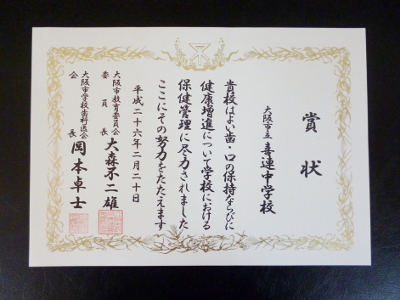 賞状
大阪市立 喜連中学校
貴校はよい歯・口の保持ならびに
健康増進について学校における
保健管理に尽力されました
ここにその努力をたたえます
平成二十六年二月二十日
大阪市教育委員会
委員長 大森不二雄
大阪市学校歯科医会
会長 岡本卓士